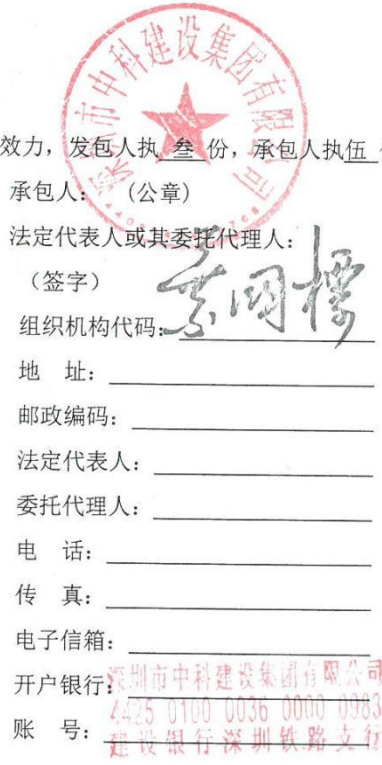 深圳市中科建设集团有限公司
效力，发包人执 叁 份，承包人执伍
承包人： （公章）
法定代表人或其委托代理人：
（签字）
组织机构代码：
地 址：
邮政编码：
法定代表人：
委托代理人：
电 话：
传 真：
电子信箱：
开户银行：
深圳市中科建设集团有限公司
账 号：
4425 0100 0036 0000 0983
建设银行深圳铁路支行